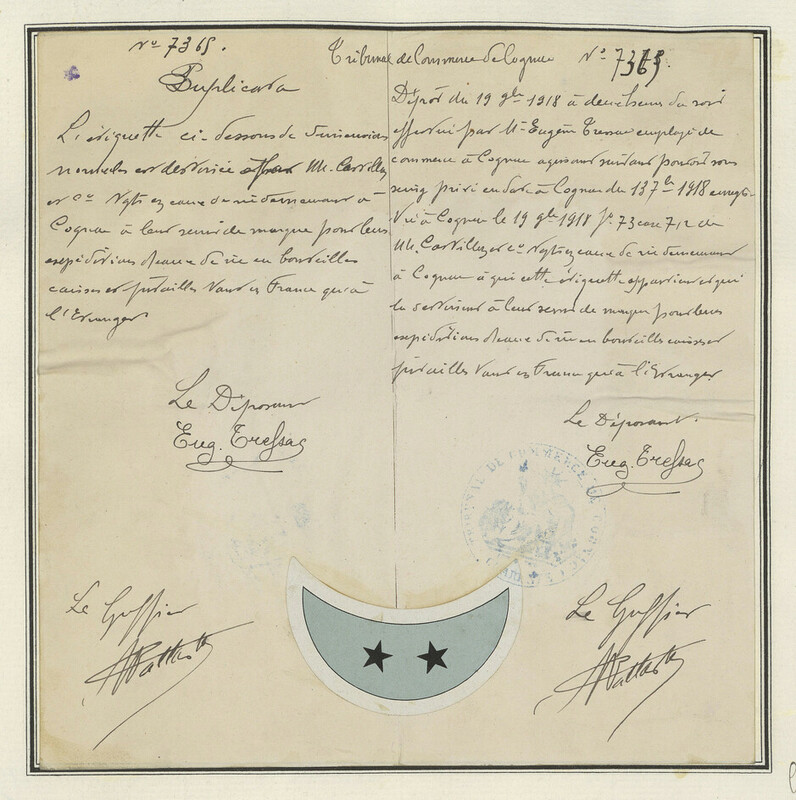 No 7365.
Duplicata
L'étiquette ci-dessous de dimensions
normales est destinée MM. Castillon
et Co Négts en eaux de vie demeurant à
Cognac à leur servir de marque pour leurs
expéditions d'eaux de vie en bouteilles
caisses et futailles tant en France qu'à
l'Etranger
Le Déposant
Eug. Tressac
Le Greffier
Tribunal de Commerce de Cognac No 7365.
Dépôt du 19 9bre 1918 à deux heures du soir
effectué par Mr Eugène Tressac employé de
commerce à Cognac agissant suivant pouvoir sous
seing privé en date à Cognac du 13 9bre 1918 enregis-
tré à Cognac le 19 9bre 1918 fo 73 case 712 de
MM. Castillon et Co Négts en eaux de vie demeurant
à Cognac à qui cette étiquette appartient et qui
la destinent à leur servir de marque pour leurs
expéditions d'eaux de vie en bouteilles caisses et
futailles tant en France qu'à l'Etranger
Le Déposant.
Eug. Tressac
TRIBUNAL DE COMMERCE DE COGNAC
Le Greffier